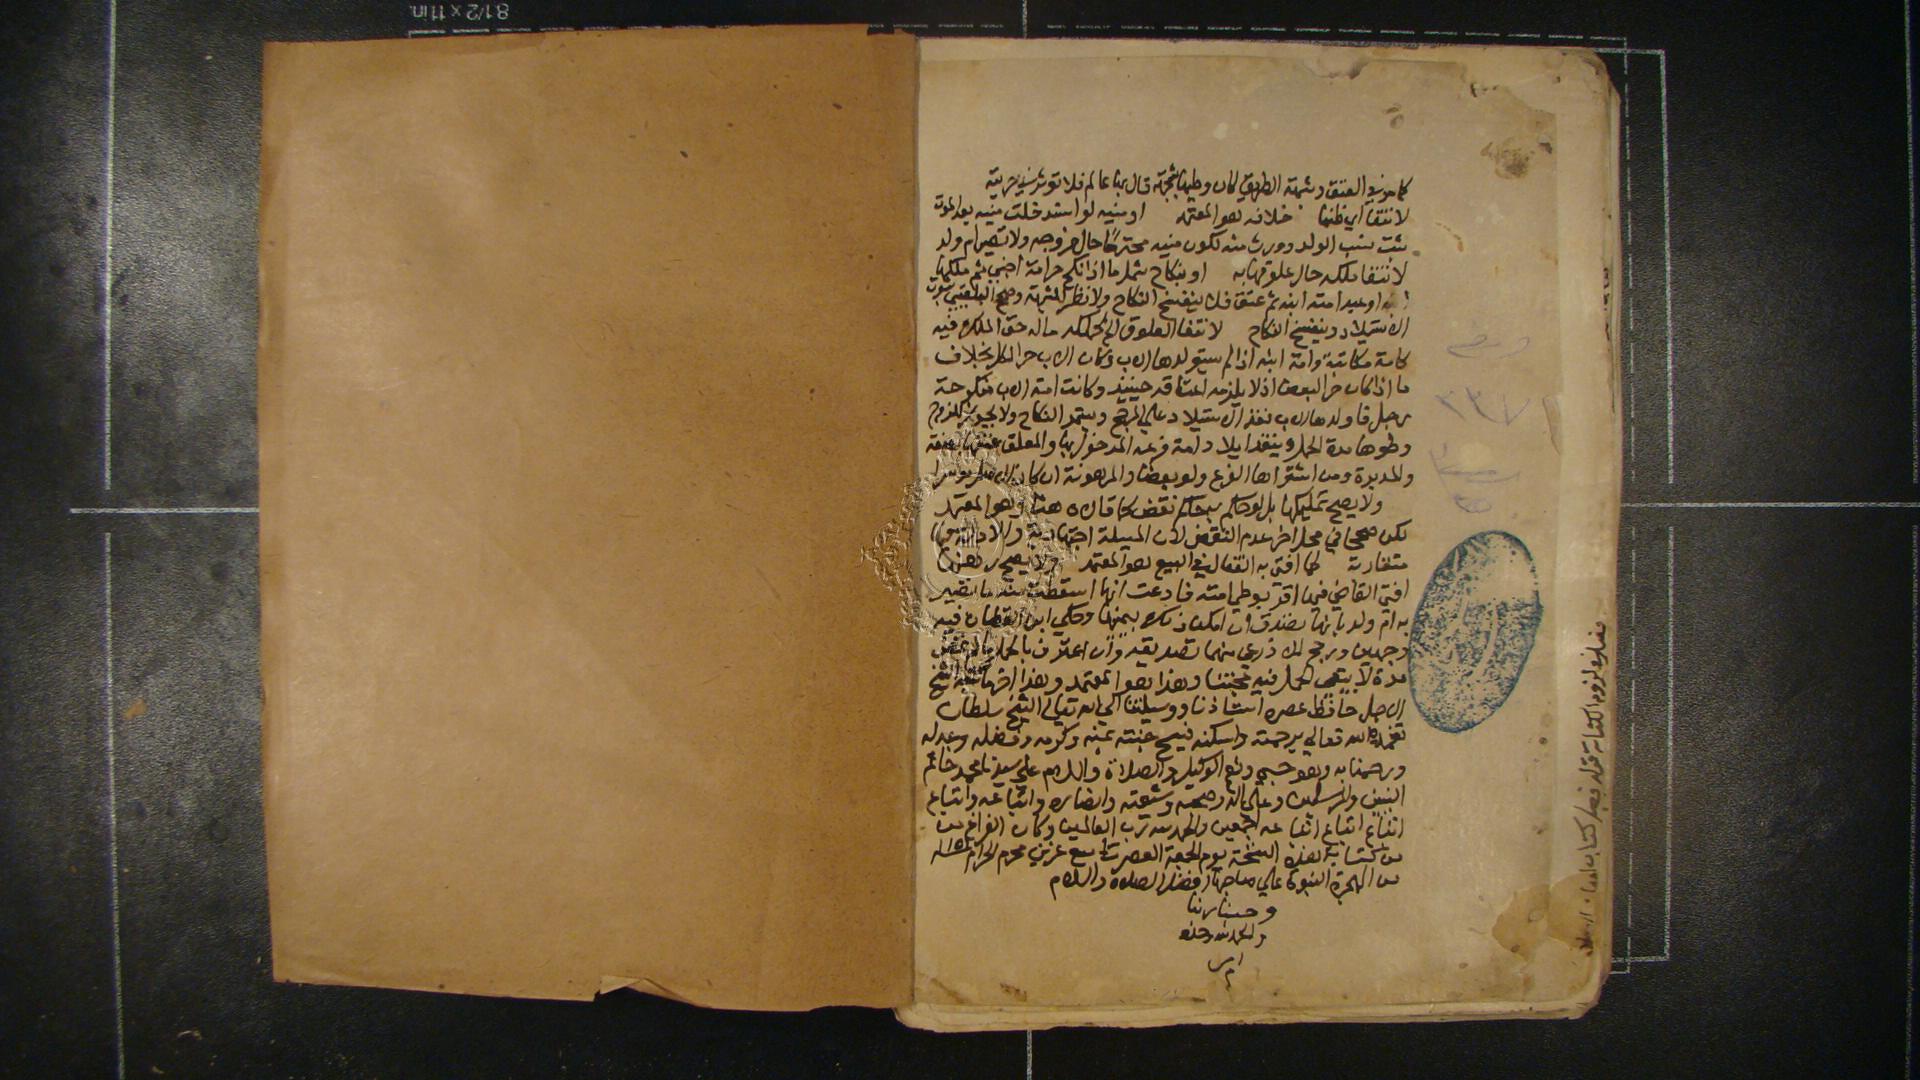 كما مر في العتق وشبهة الطريق كان وطيها بجهة قال بها عالم فلا تؤثر في حريته
لانتفا اي ظنها خلافه هو المعتمد او منيه لو استدخلت منيه بعد الموت
يثبت نسب الولد وورث منه لكون منيه محترما حال خروجه ولا تصير ام ولد
لانتفا ملكه حال علوقها به او بنكاح شمل ما اذا نكح حر امة اجنبي ثم ملكها
او عبد امة ابنه ثم عتق فلا ينفسخ النكاح ولا نظر للشبهة وصحح البلقيني ثبوت
الاستيلاد وينفسخ النكاح لانتفا العلوق لم يملكه ما له حق الملك فيه
كامة مكاتبة وامة ابنه اذا لم يستولدها الابن وكان الاب حر الكل بخلاف
ما اذا كان حر البعض اذ لا يلزمه اعفافه حينئذ وكانت امة الابن منكوحة
رجل فاولدها الاب نفذ الاستيلاد علي المرجح ويستمر النكاح ولا يجوز للزوج
وطوها مدة الحمل وينفذ ايلاد امة فرعه المدخول بها والمعلق عتقها بصفة
والمدبرة ومن اشتراها الفرع ولو بعضا والمرهونة ان كان الاصل موسرا
ولا يصح تمليكها بل لو حكم به حاكم نقض كما قاله هنا وهو المعتمد
لكن صححا في محل اخر عدم النقض لان المسيلة اجتهادية والادلة فيها
متقاربة كما افتي به القفال في البيع هو المعتمد ولا يصح رهنها
افتي القاضي فيما اقر بوطي امته فادعت انها اسقطت منه ما تصير
به ام ولد بانها تصدق ان امكن ذلك بيمينها وحكي ابن القطان فيه
وجهين ورجح الاذرعي منهما تصديقه وان اعترف بالحمل
مدة لا يبقي الحمل فيه مجتنا وهذا هو المعتمد وهذا اخر ما كتبه الشيخ
الاجل حافظ عصره استاذنا ووسيلتنا الي الله تعالي الشيخ سلطان
تغمده الله تعالي برحمته واسكنه فسيح جنته بمنه وكرمه وفضله وعدله
ورحمنا به وهو حسبي ونعم الوكيل والصلاة والسلام علي سيدنا محمد خاتم
النبين والمرسلين وعلي اله وصحبه وشيعته وانصاره واتباعه واتباع
اتباع اتباع اتباعه اجمعين والحمد لله رب العالمين وكان الفراغ من
من كتابة هذه النسخة يوم الجمعة العصر محرم الحرام
من الهجرة النبوية علي صاحبها افضل الصلاة والسلام
وحسبنا ربنا
والحمد لله وحده
ام